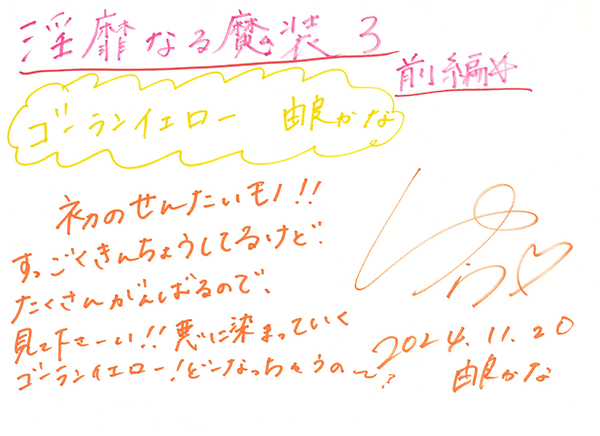 淫靡なる魔装 3
前編
ゴーランイエロー 由良かな
初のせんたいモノ!!
すっごくきんちょうしてるけど、
たくさんがんばるので、
見て下さーい!! 悪に染まっていく
ゴーランイエロー! どーなっちゃうのー?
2024.11.20
由良かな